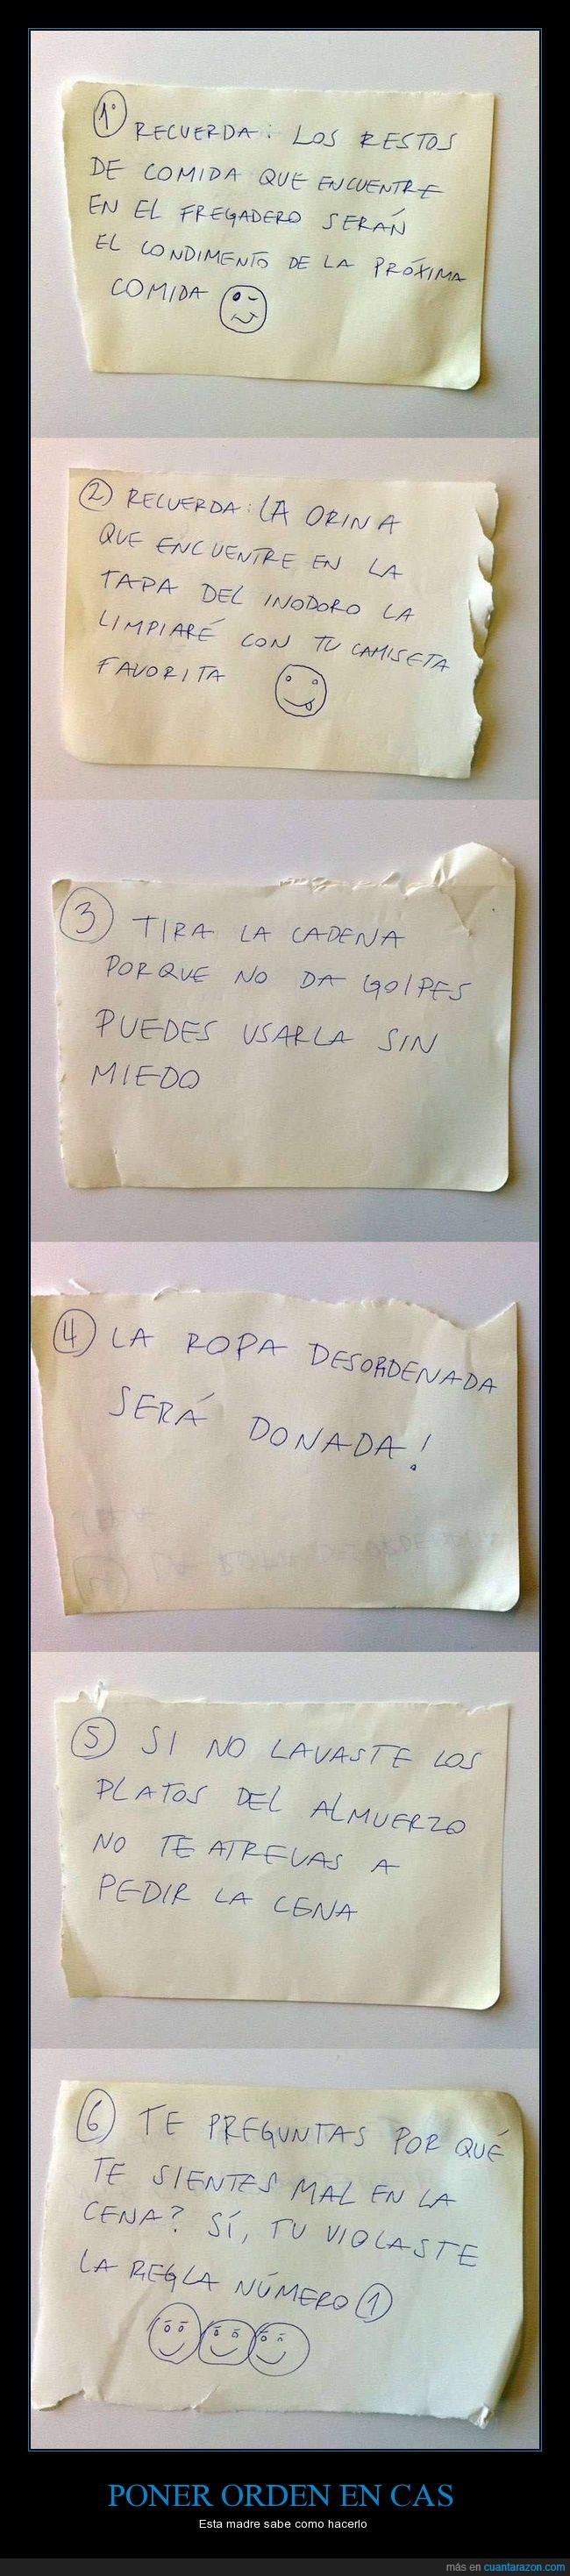 1º RECUERDA: LOS RESTOS
DE COMIDA QUE ENCUENTRE
EN EL FREGADERO SERÁN
EL CONDIMENTO DE LA PRÓXIMA
COMIDA
2 RECUERDA: LA ORINA
QUE ENCUENTRE EN LA
TAPA DEL INODORO LA
LIMPIARÉ CON TU CAMISETA
FAVORITA
3 TIRA LA CADENA
PORQUE NO DA GOLPES
PUEDES USARLA SIN
MIEDO
4 LA ROPA DESORDENADA
SERÁ DONADA!
5 SI NO LAVASTE LOS
PLATOS DEL ALMUERZO
NO TE ATREVAS A
PEDIR LA CENA
6 TE PREGUNTAS POR QUÉ
TE SIENTES MAL EN LA
CENA? SÍ, TU VIOLASTE
LA REGLA NÚMERO 1
PONER ORDEN EN CAS
Esta madre sabe como hacerlo
más en cuantarazon.com